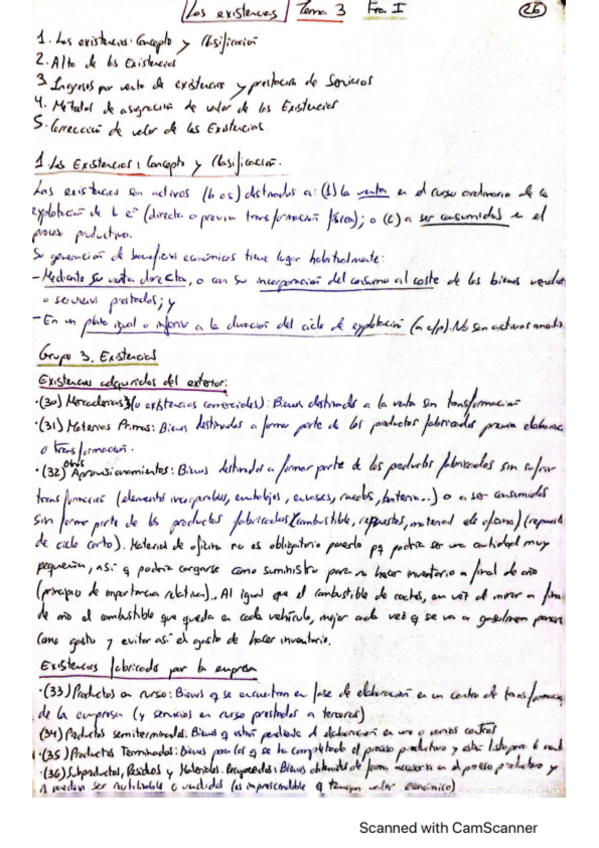 Las existencias Tema 3 Fra. I 26
1. Las existencias: Concepto y Clasificación
2. Alta de las Existencias
3. Ingresos por venta de existencias y prestación de Servicios
4. Métodos de asignación de valor de las Existencias
5. Corrección de valor de las Existencias.
1. Las Existencias: Concepto y Clasificación.
Las existencias son activos (b os) destinados a: (1) la venta en el curso ordinario de la
explotación de la eª (directa o previa transformación física); o (c) a ser consumidos en el
proceso productivo.
Su generación de beneficios económicos tiene lugar habitualmente:
- Mediante su venta directa, o con su incorporación del consumo al coste de los bienes vendidos
o servicios prestados; y
- En un plazo igual o inferior a la duración del ciclo de explotación (en c/p). No son activos
Grupo 3. Existencias
Existencias adquiridas del exterior:
·(30) Mercaderías (o existencias comerciales): Bienes destinados a la venta sin transformación
·(31) Materias Primas: Bienes destinados a formar parte de los productos fabricados previa
o transformación.
·(32) otros Aprovisionamientos: Bienes destinados a formar parte de los productos fabricados sin sufrir
transformación (elementos incorporables, embalajes, envases, batería...) o a ser consumidos
sin formar parte de los productos fabricados (combustible, repuestos, material de oficina) (repuest
de ciclo corto). Material de oficina no es obligatorio ponerlo pq podría ser una cantidad muy
pequeña, así q podría cargarse como suministro para no hacer inventario a final de año
(principio de importancia relativa). Al igual que el combustible de coches, en vez de mirar a fin
de año el combustible que queda en cada vehículo, mejor cada vez q se va a gasolinera poner
como gasto y evitar así el gasto de hacer inventario.
Existencias fabricadas por la empresa
·(33) Productos en curso: Bienes q se encuentran en fase de elaboración en un centro de transforma
de la empresa (y servicios en curso prestados a terceros)
(34) Productos semiterminados: Bienes q están pendiente de elaboración en uno o varios centros
·(35) Productos Terminados: Bienes para los q se ha completado el proceso productivo y están listos para la
·(36) Subproductos, Residuos y Materiales Recuperados: Bienes obtenidos de forma accesoria en el proceso productivo y
q pueden ser reutilizables o vendidos (es imprescindible q tengan valor económico)
Scanned with CamScanner